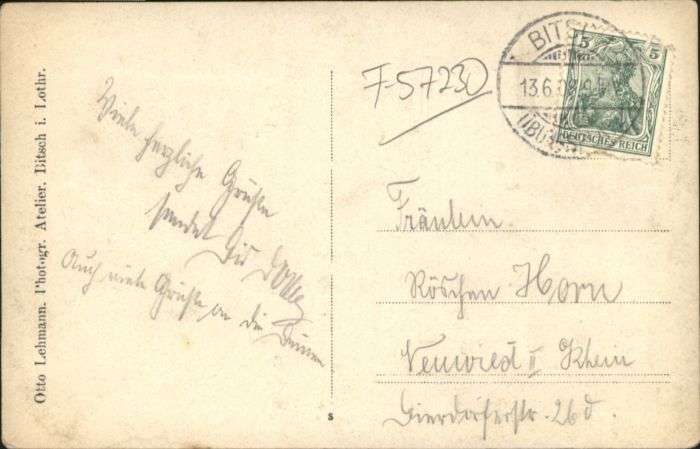 Otto Lehmann. Photogr. Atelier. Bitsch i. Lothr.
Viele herzliche Grüße
sendet Dir
Auch viele Grüße an die
F-57230
BITSCH
13.6.09
5 5
DEUTSCHES REICH
Fräulein
Röschen Horn
Neuwied II Rhein
Dierdorferstr. 26d.
s